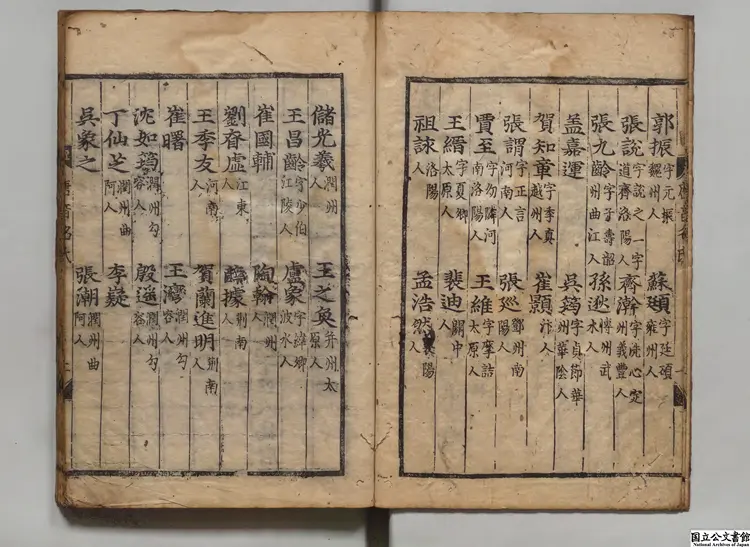 郭振字元振魏州人 蘇頲字廷碩雍州人
張說字說之一字道濟洛陽人 齊澣字洗心定州義豐人
張九齡字子壽韶州曲江人 孫逖博州武水人
盖嘉運 吳筠字貞節華州華陰人
賀知章字季真越州人 崔顥汴人
張謂字正言河南人 張廵鄧州南陽人
賈至字幼隣河南洛陽人 王維字摩詰太原人
王縉字夏卿太原人 裴迪關中人
祖詠洛陽人 孟浩然襄陽人
儲光羲潤州人 王之奐并州太原人
王昌齡字少伯江陵人 盧象字緯卿汶水人
崔國輔 陶翰潤州人
劉眘虛江東人 薛據荆南人
王季友河南人 賀蘭進明
崔曙 王灣
沈如筠潤州勾容人 殷遥潤州勾容人
丁仙芝潤州曲阿人 李嶷
吳象之 張潮潤州曲阿人
国立公文書館
National Archives of Japan